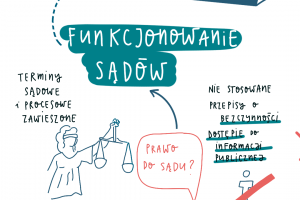 FUNKCJONOWANIE
SĄDÓW
TERMINY
SĄDOWE
i PROCESOWE
ZAWIESZONE
PRAWO
DO SĄDU?
NIE STOSOWANE
PRZEPISY O
BEZCZYNNOŚCI
DOSTĘPIE DO
INFORMACJI
PUBLICZNEJ